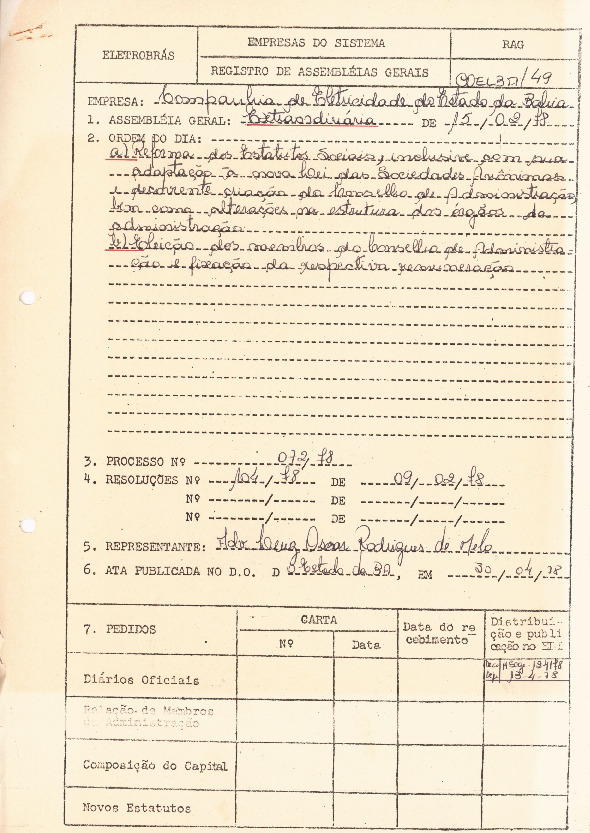 ELETROBRÁS
EMPRESAS DO SISTEMA
RAG
REGISTRO DE ASSEMBLÉIAS GERAIS
/49
EMPRESA: Companhia de Eletricidade do Estado da Bahia
1. ASSEMBLÉIA GERAL: Extraordinária DE 15/02/78
2. ORDEM DO DIA:
a) Reforma dos Estatutos Sociais, inclusive com sua
adaptação à nova Lei das Sociedades Anônimas
e decorrente criação do Conselho de Administração,
bem como alterações na estrutura dos órgãos de
administração.
b) Eleição dos membros do Conselho de Administra-
ção e fixação da respectiva remuneração
3. PROCESSO Nº 072/78
4. RESOLUÇÕES Nº 104/78 DE 09/02/78
Nº ------/------ DE -----/-----/-----
Nº ------/------ DE -----/-----/-----
5. REPRESENTANTE: Adv Oscar Rodrigues de Melo
6. ATA PUBLICADA NO D.O. D O Estado da BA, EM 30/04/78
7. PEDIDOS
CARTA
Nº
Data
Data do re
cebimento
Distribui-
ção e publi
cação no
13/4/78
13-4-78
Diários Oficiais
Relação de Membros
da Administração
Composição do Capital
Novos Estatutos